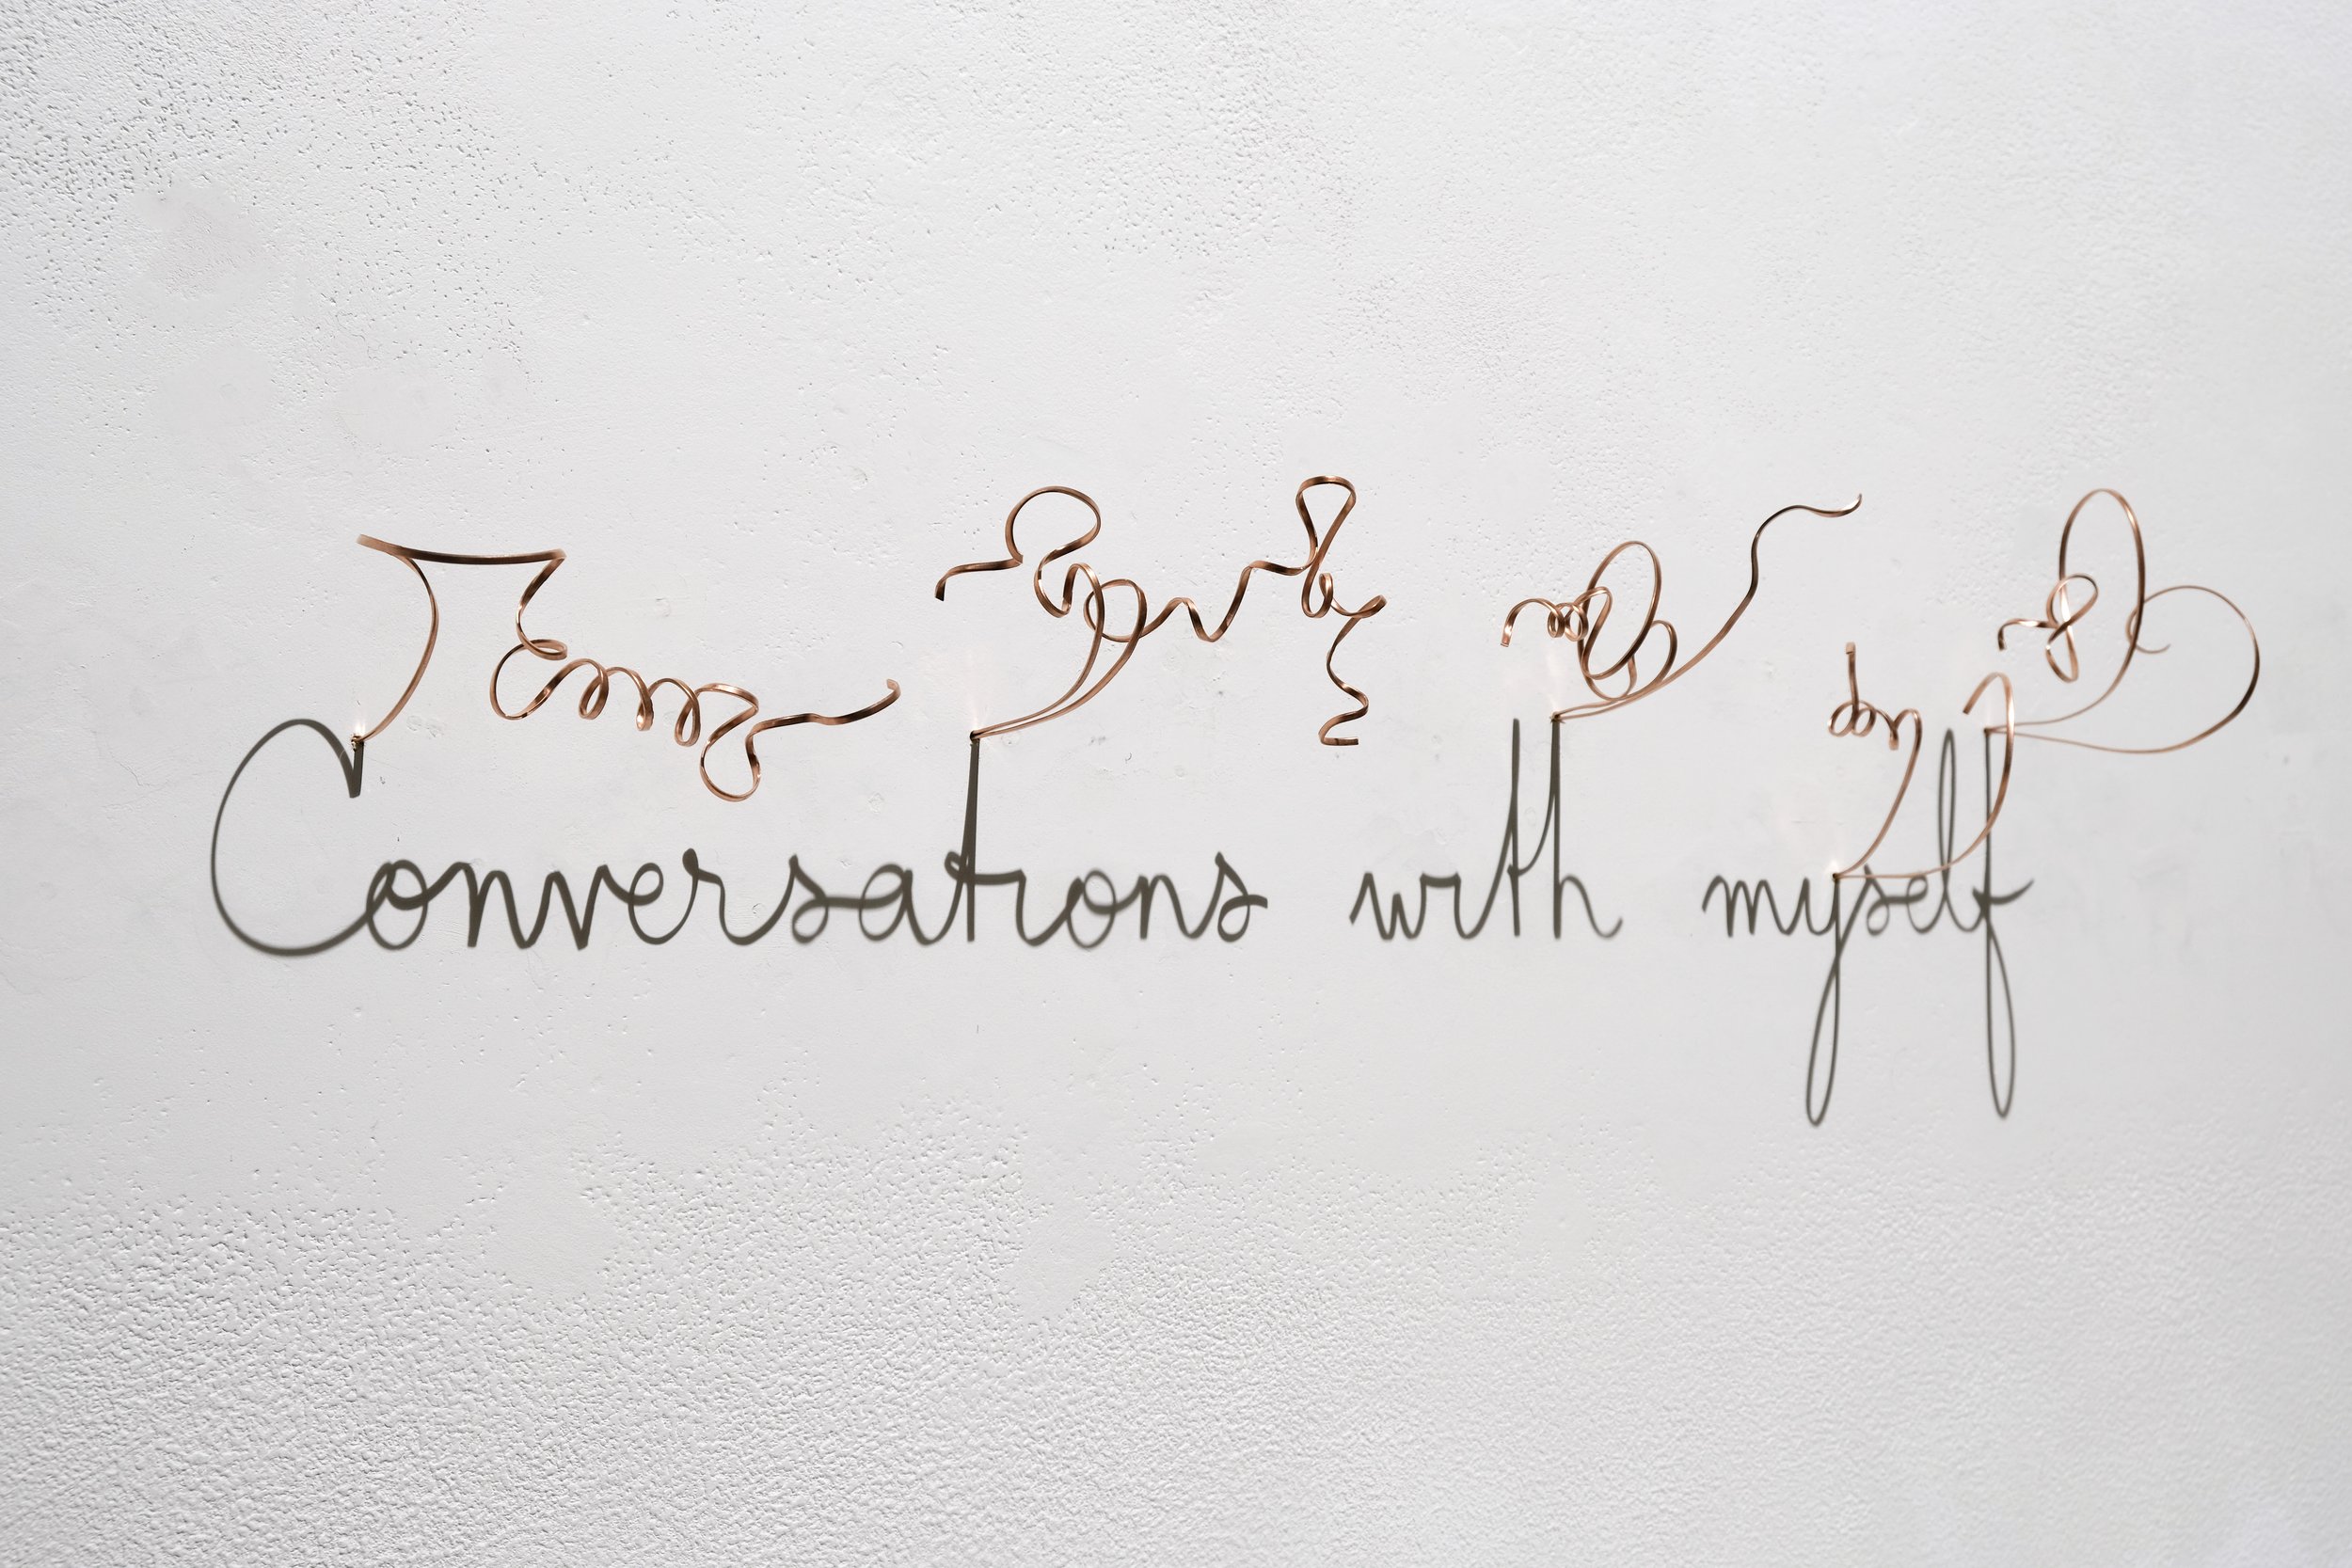 Conversations with myself